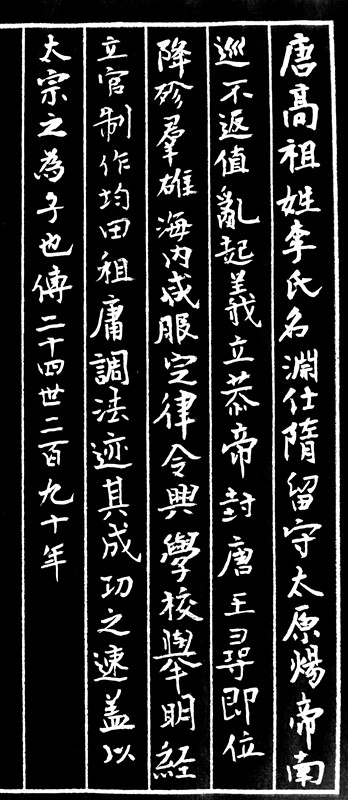 唐高祖姓李氏名淵仕隋留守太原煬帝南
巡不返值亂起義立恭帝封唐王尋即位
降殄羣雄海內咸服定律令興學校舉明經
立官制作均田租庸調法迹其成功之速盖以
太宗之為子也傳二十四世二百九十年